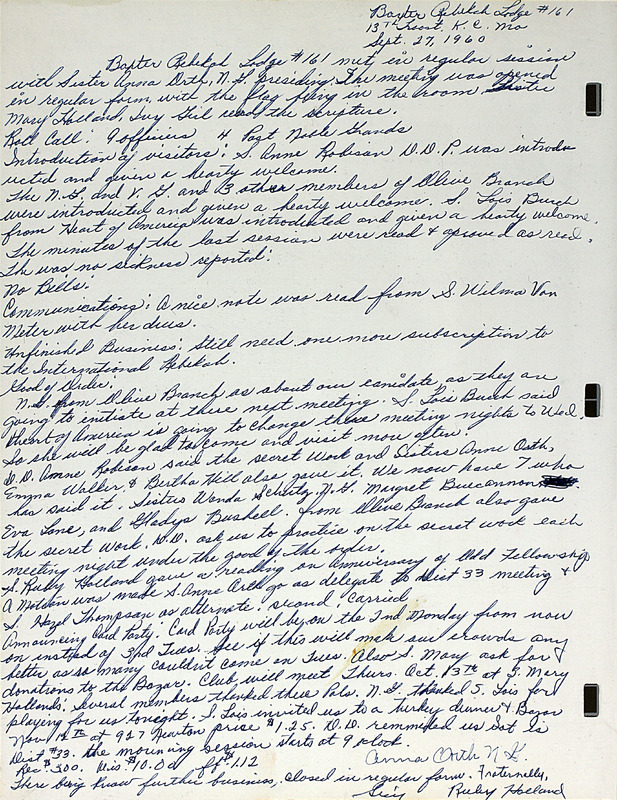 Baxter Rebekah Lodge #161
13th Troost, K.C. Mo
Sept. 27, 1960
Baxter Rebekah Lodge #161 met in regular session
with Sister Anna Orth, N.G. presiding. The meeting was opened
in regular form, with the flag flying in the room. Sister
Mary Holland, Ivy Gril read the scripture.
Roll Call: 9 officers 4 Past Noble Grands
Introduction of visitors: S. Anne Robison D.D.P. was introdu
ucted and given a hearty welcome.
The N.G. and V.G. and 3 other members of Olive Branch
were introducted and given a hearty welcome. S. Lois Burch
from Heart of America was introducted and given a hearty welcome.
The minutes of the last session were read & aproved as read.
The was no sickness reported.
No Bills.
Communications: A nice note was read from S. Wilma Van
Meter with her dues.
Unfinished Business: Still need one more subscription to
the International Rebekah.
Good of Order.
N.G. from Olive Branch as about our canidate, as they are
going to initiate at there next meeting. S. Lois Burch said
Heart of America is going to change there meeting nights to Wed.
So she will be glad to come and visit mou often.
D.D. Anne Robison said the secret Work and Sisters Anne Orth,
Emma Waller & Bertha Hill also gave it. We now have 7 who
has said it. Sisters Wanda Schultz, N.G. Margret Buccannon
Eva Lane, and Gladys Bushell. from Olive Branch also gave
the secret work. D.D. ask us to practice on the secret work each
meeting night under the good of the order.
S. Ruby Holland gave a reading on Anniversary of Odd Fellowship
A Motion was made S. Anne Arch go as delegate to Dist 33 meeting &
S. Hazel Thompson as alternate. second, carried
Announcing Card Party: Card Party will be on the 2nd Monday from now
on insted of 3rd Tues. See if this will mek our crowds any
better as so many couldn't come on Tues. Also S. Mary ask for
donations to the Bazar. Club will meet Thurs. Oct. 13th at S. Mary
Hollands. Several members thanked there Pals. N.G. thanked S. Lois for
playing for us tonight. S. Lois invited us to a turkey dinner & Bazar
Nov 12th at 927 Newton price $1.25. D.D. reminded us Sat is
Dist #33. the mourning session starts at 9 oclock.
Rec. $3.00. Mis $10.00 1.12
Anna Orth N.G.
There being know further business, closed in regular form. Fraternally,
Ruby Holland